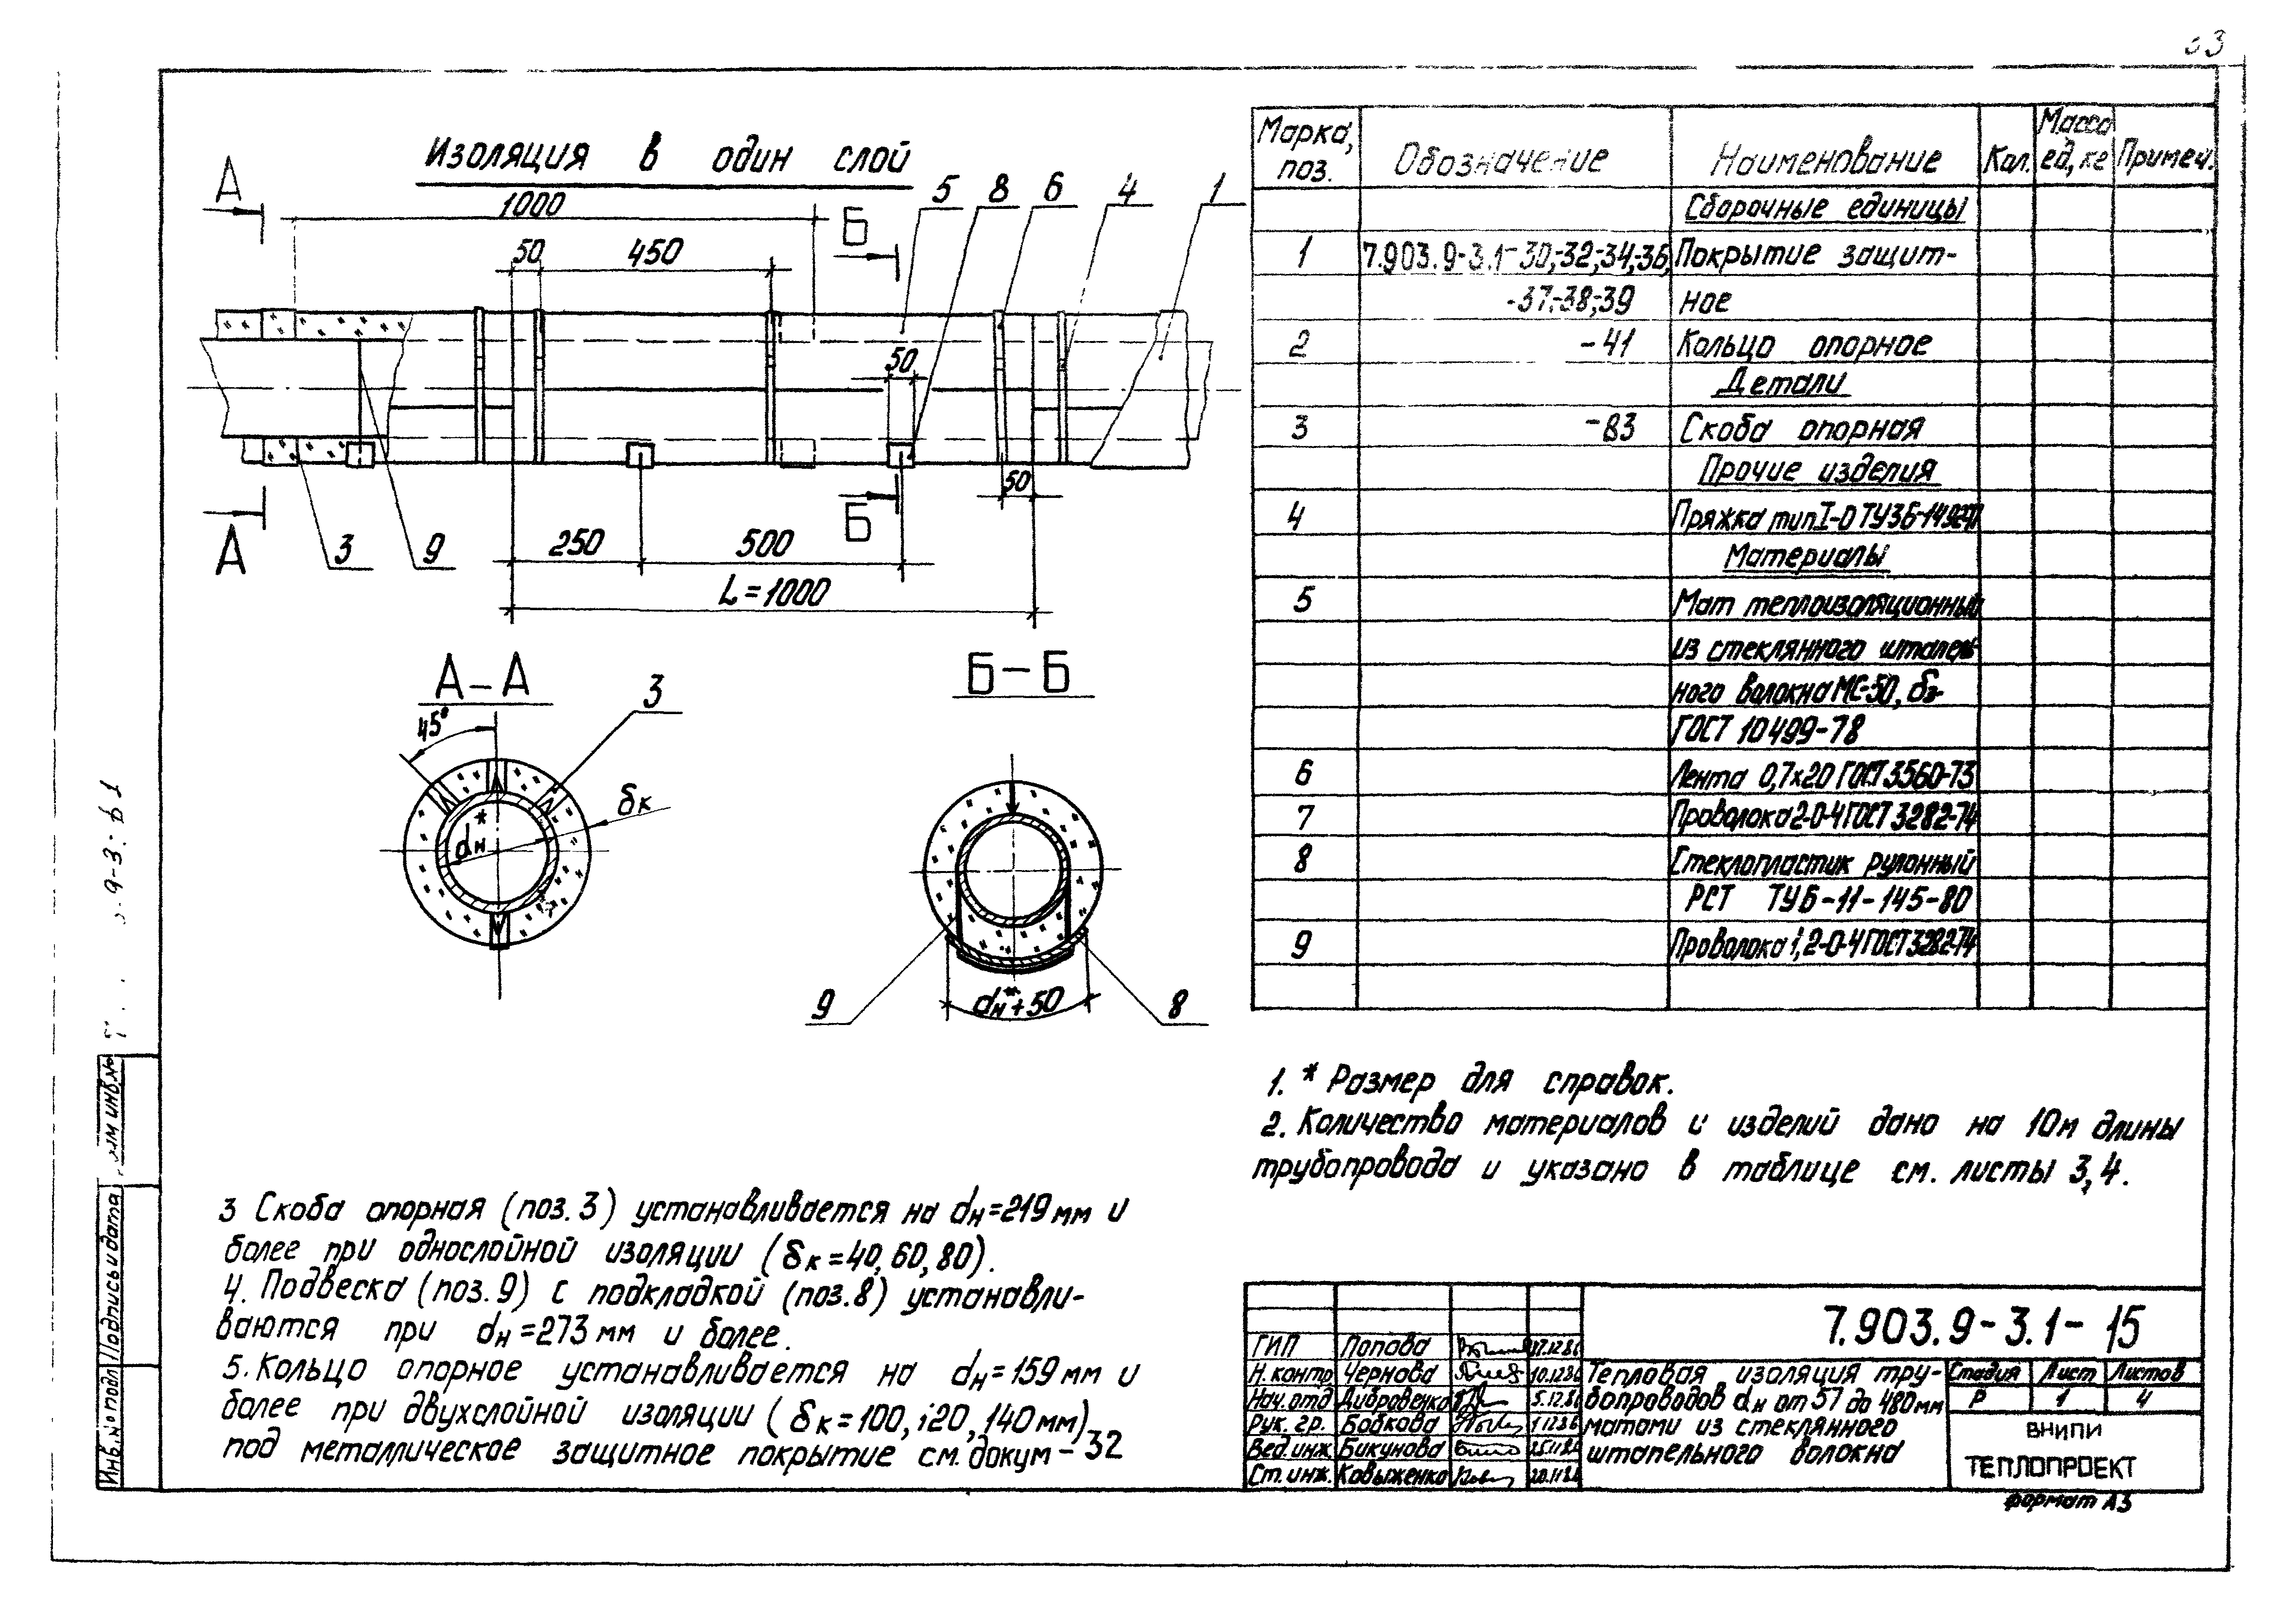 Изоляция в один слой
А
1000
Б
5
8
6
4
1
50
450
50
50
А
3
9
Б
250
500
L=1000
А-А
Б-Б
45°
3
δк
dн*
9
dн*+50
8
Марка, поз.
Обозначение
Наименование
Кол.
Масса ед, кг
Примеч.
Сборочные единицы
1
7.903.9-3.1-30;-32;-34;-36,
Покрытие защит-
-37;-38;-39
ное
2
-41
Кольцо опорное
Детали
3
-83
Скоба опорная
Прочие изделия
4
Пряжка тип I-О ТУ36-1492-77
Материалы
5
Мат теплоизоляционный
из стеклянного штапель-
ного волокна МС-50, δ
ГОСТ 10499-78
6
Лента 0,7×20 ГОСТ 3560-73
7
Проволока 2-О-Ч ГОСТ 3282-74
8
Стеклопластик рулонный
РСТ ТУ6-11-145-80
9
Проволока 1,2-О-Ч ГОСТ 3282-74
1. * Размер для справок.
2. Количество материалов и изделий дано на 10м длины
трубопровода и указано в таблице см. листы 3,4.
3 Скоба опорная (поз. 3) устанавливается на dн=219 мм и
более при однослойной изоляции (δк=40, 60, 80).
4. Подвеска (поз. 9) с подкладкой (поз. 8) устанавли-
ваются при dн=273 мм и более.
5. Кольцо опорное устанавливается на dн=159 мм и
более при двухслойной изоляции (δк=100, 120, 140 мм)
под металлическое защитное покрытие см. докум -32
7.903.9-3.1-15
ГИП Попова
Н. контр Чернова 10.12.86
Нач. отд Дибровенко 5.12.86
Рук. гр. Бобкова 1.12.86
Вед. инж. Бикунова 25.11.86
Ст. инж. Ковыженко 20.11.86
Тепловая изоляция тру-
бопроводов dн от 57 до 480 мм
матами из стеклянного
штапельного волокна
Стадия
Лист
Листов
Р
1
4
ВНИПИ
ТЕПЛОПРОЕКТ
формат А3
Инв. № подл
Подпись и дата
инв. №